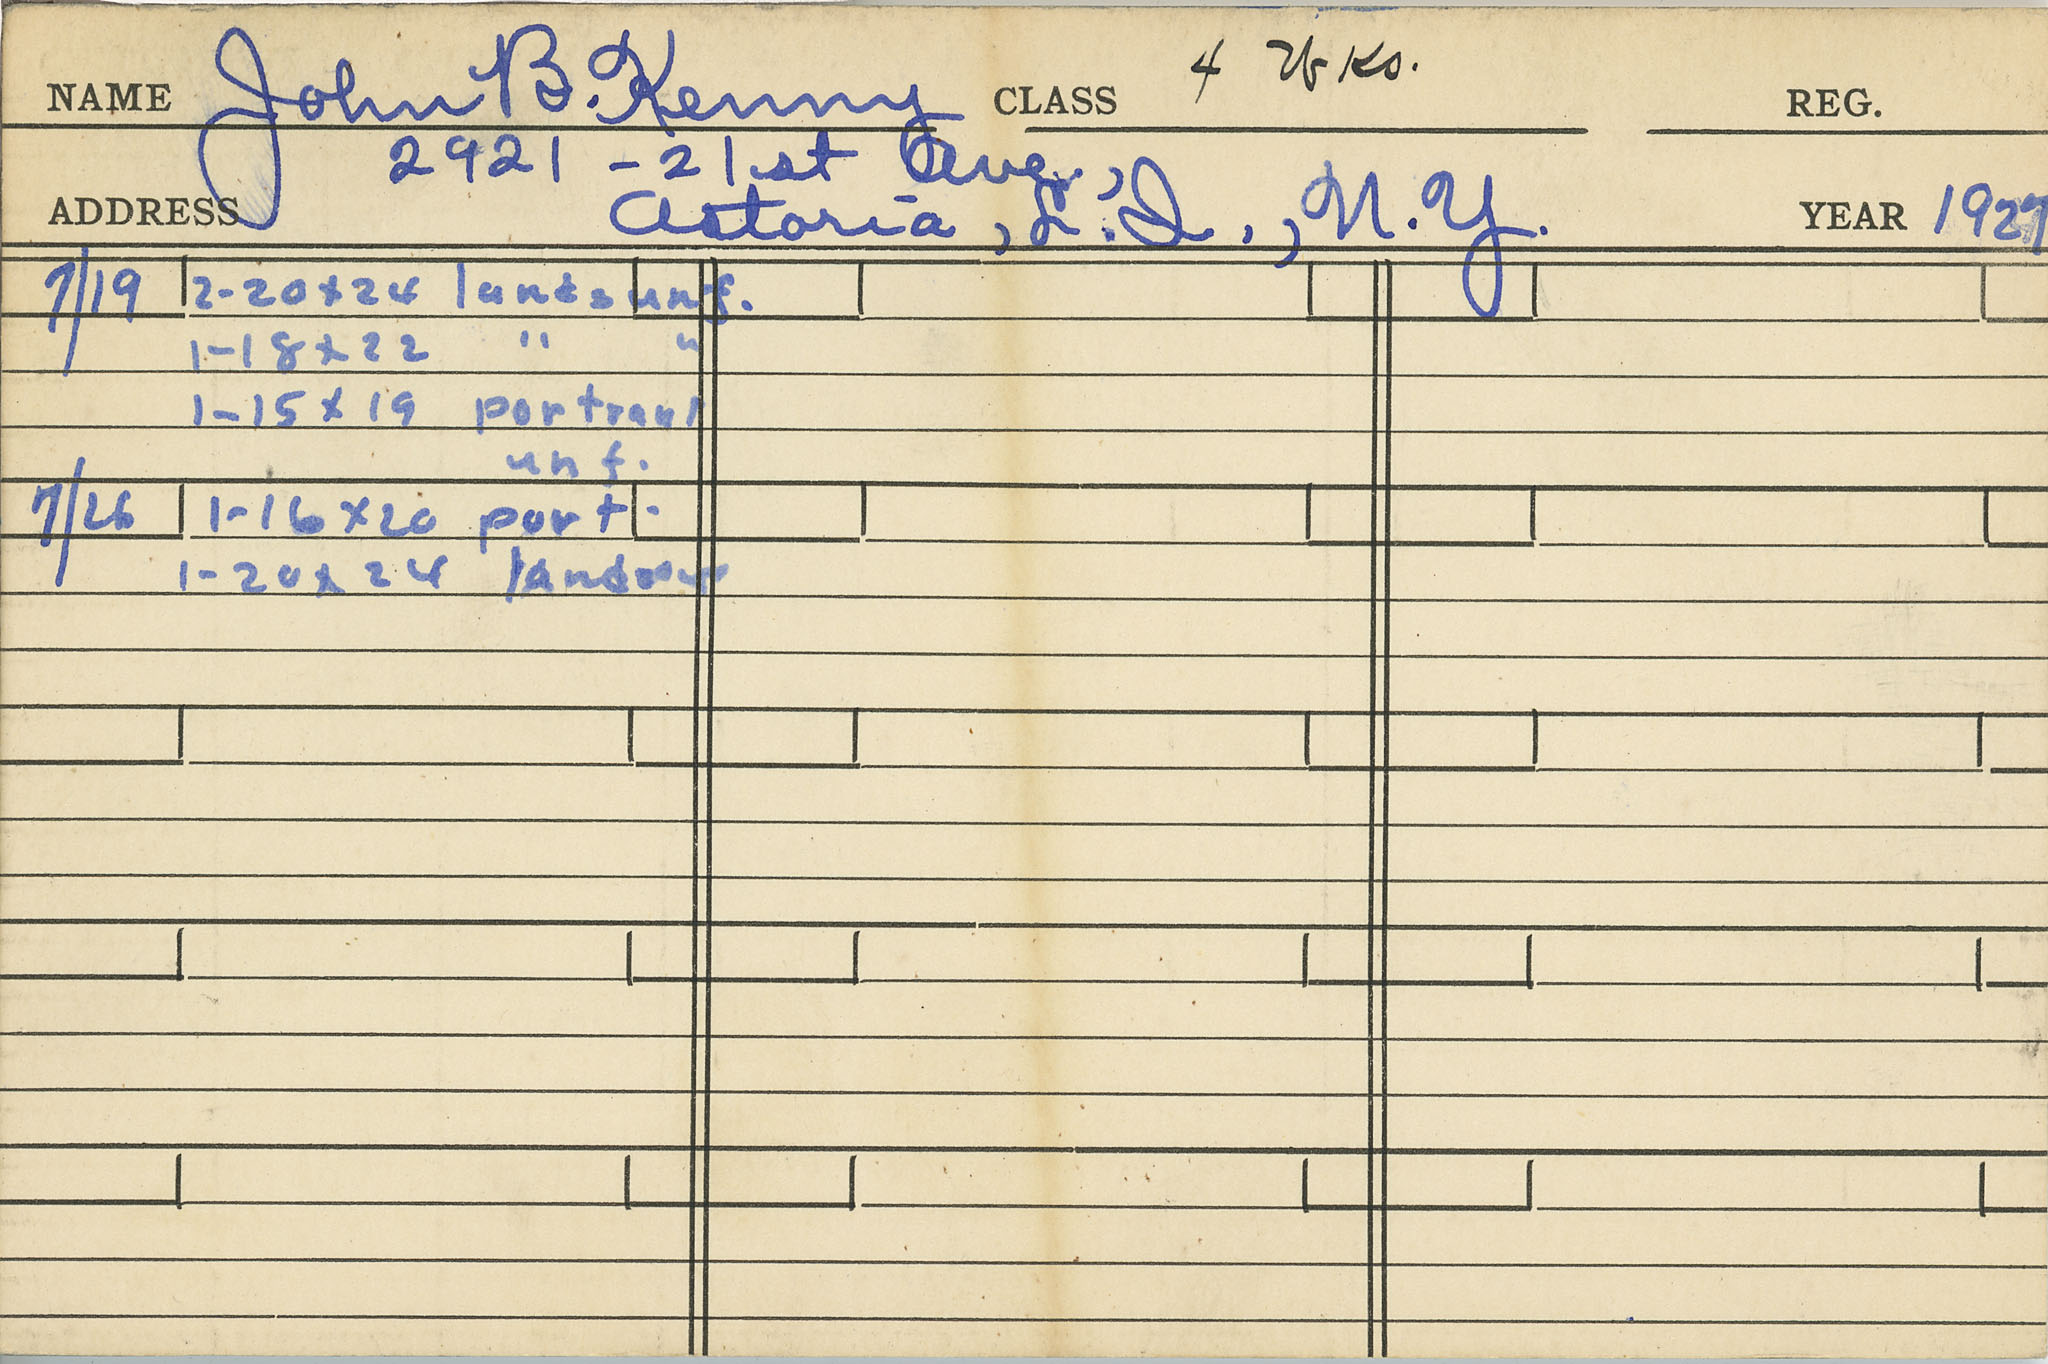 NAME John B. Kenny CLASS 4 Wks. REG.
2921 - 21st Ave.,
ADDRESS Astoria, L.I., N.Y. YEAR 1927
7/19 2-20x24 lands unf.
1-18x22 " "
1-15x19 portrait
unf.
7/26 1-16x20 port.
1-20x24